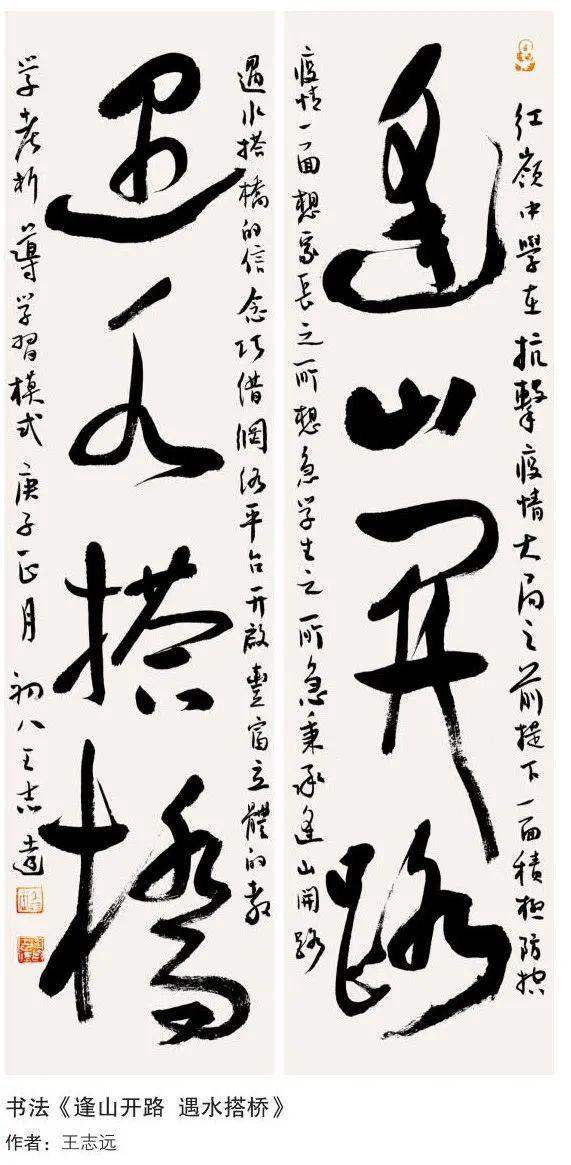 红嶺中學在抗擊疫情大局之前提下一面積极防控
逢山开路
疫情一面想家長之所想急学生之所急秉承逢山開路
遇水搭橋的信念巧借網络平台开啟豐富立體的教
遇水搭橋
学考析導学習模式 庚子正月初八王志遠
书法《逢山开路 遇水搭桥》
作者：王志远